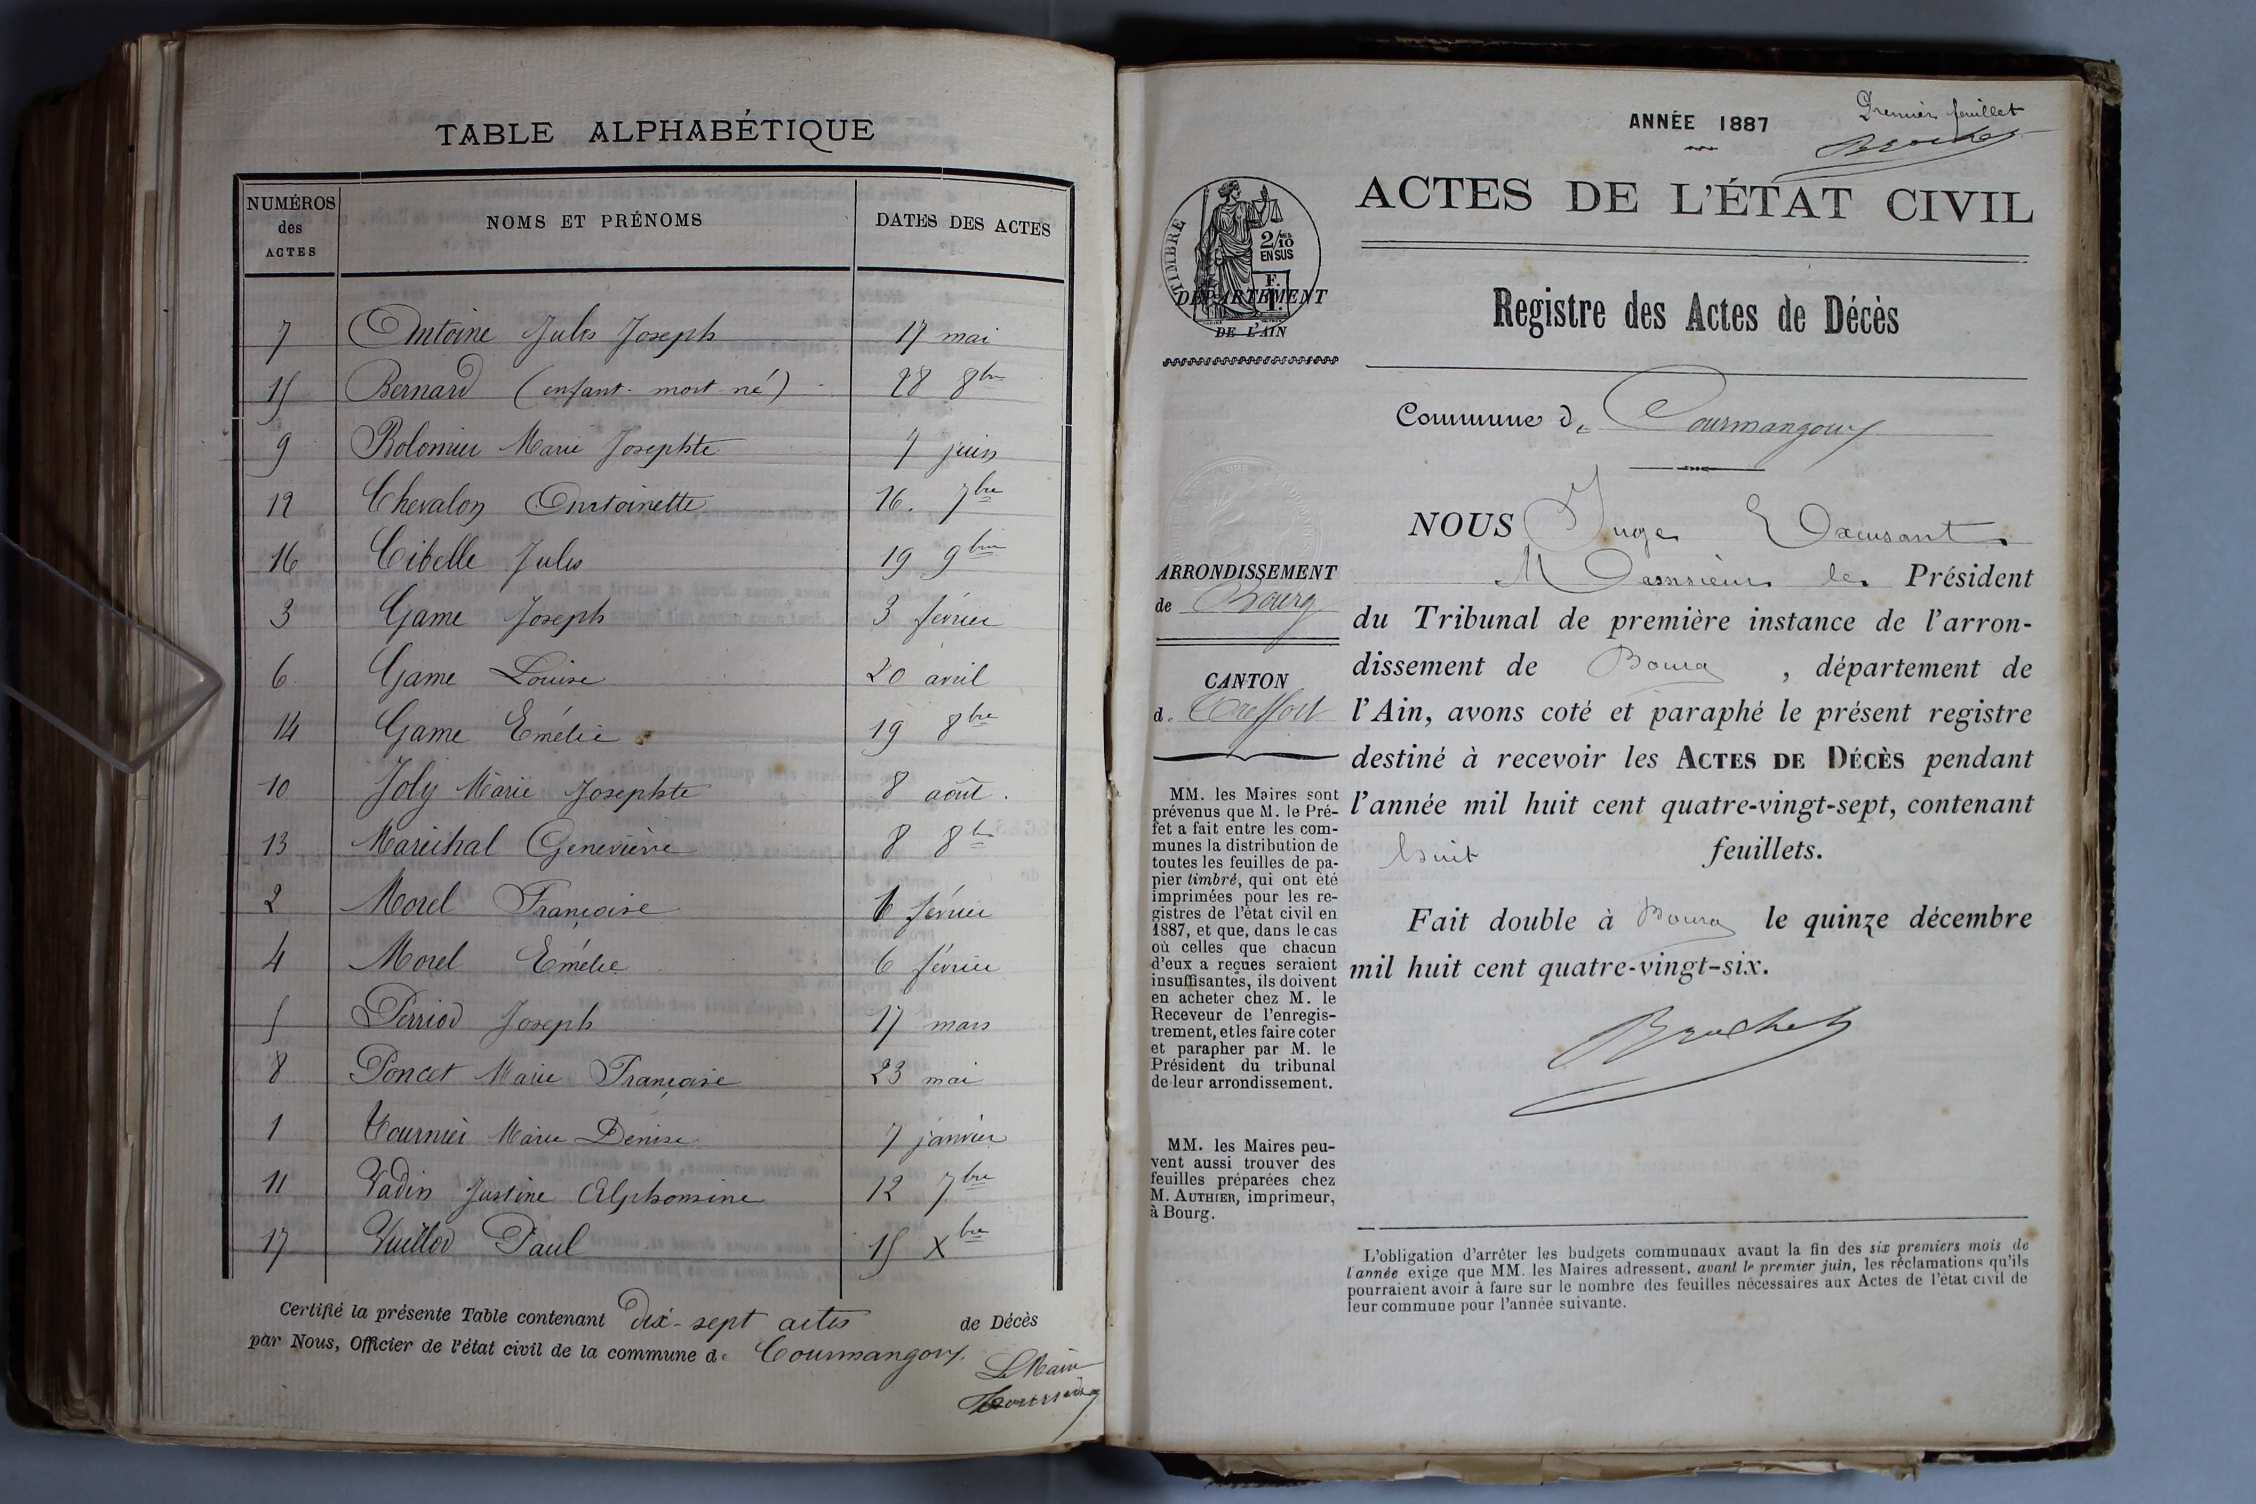 TABLE ALPHABÉTIQUE
NUMÉROS des ACTES NOMS ET PRÉNOMS DATES DES ACTES
7 Antoine Jules Joseph 17 mai
15 Bernard (enfant mort-né) 28 8bre
9 Bolomier Marie Josephte 7 juin
12 Chevalon Antoinette 16. 7bre
16 Cibelle Jules 19 9bre
3 Game Joseph 3 février
6 Game Louise 20 avril
14 Game Emélie 19 8bre
10 Joly Marie Josephte 8 août.
13 Maréchal Geneviève 8 8bre
2 Morel Françoise 1 février
4 Morel Emélie 6 février
5 Perriod Joseph 17 mars
8 Poncet Marie Françoise 23 mai
1 Tournier Marie Denise 7 janvier
11 Vadin Justine Alphonsine 12 7bre
17 Vuillod Paul 15 Xbre
Certifié la présente Table contenant dix-sept actes de Décès
par Nous, Officier de l'état civil de la commune de Courmangoux.
Le Maire
Premier feuillet
ANNÉE 1887
Brochet
ACTES DE L'ÉTAT CIVIL
TIMBRE
2/10
EN SUS
DÉPARTEMENT
DE L'AIN
Registre des Actes de Décès
Commune de Courmangoux
NOUS Juge
Monsieur le Président
du Tribunal de première instance de l'arron-
dissement de Bourg, département de
l'Ain, avons coté et paraphé le présent registre
destiné à recevoir les ACTES DE DÉCÈS pendant
l'année mil huit cent quatre-vingt-sept, contenant
huit feuillets.
Fait double à Bourg le quinze décembre
mil huit cent quatre-vingt-six.
Brochet
ARRONDISSEMENT
de Bourg
CANTON
d. Treffort
MM. les Maires sont
prévenus que M. le Pré-
fet a fait entre les com-
munes la distribution de
toutes les feuilles de pa-
pier timbré, qui ont été
imprimées pour les re-
gistres de l'état civil en
1887, et que, dans le cas
où celles que chacun
d'eux a reçues seraient
insuffisantes, ils doivent
en acheter chez M. le
Receveur de l'enregis-
trement, et les faire coter
et parapher par M. le
Président du tribunal
de leur arrondissement.
MM. les Maires peu-
vent aussi trouver des
feuilles préparées chez
M. AUTHIER, imprimeur,
à Bourg.
L'obligation d'arrêter les budgets communaux avant la fin des six premiers mois de
l'année exige que MM. les Maires adressent, avant le premier juin, les réclamations qu'ils
pourraient avoir à faire sur le nombre des feuilles nécessaires aux Actes de l'état civil de
leur commune pour l'année suivante.